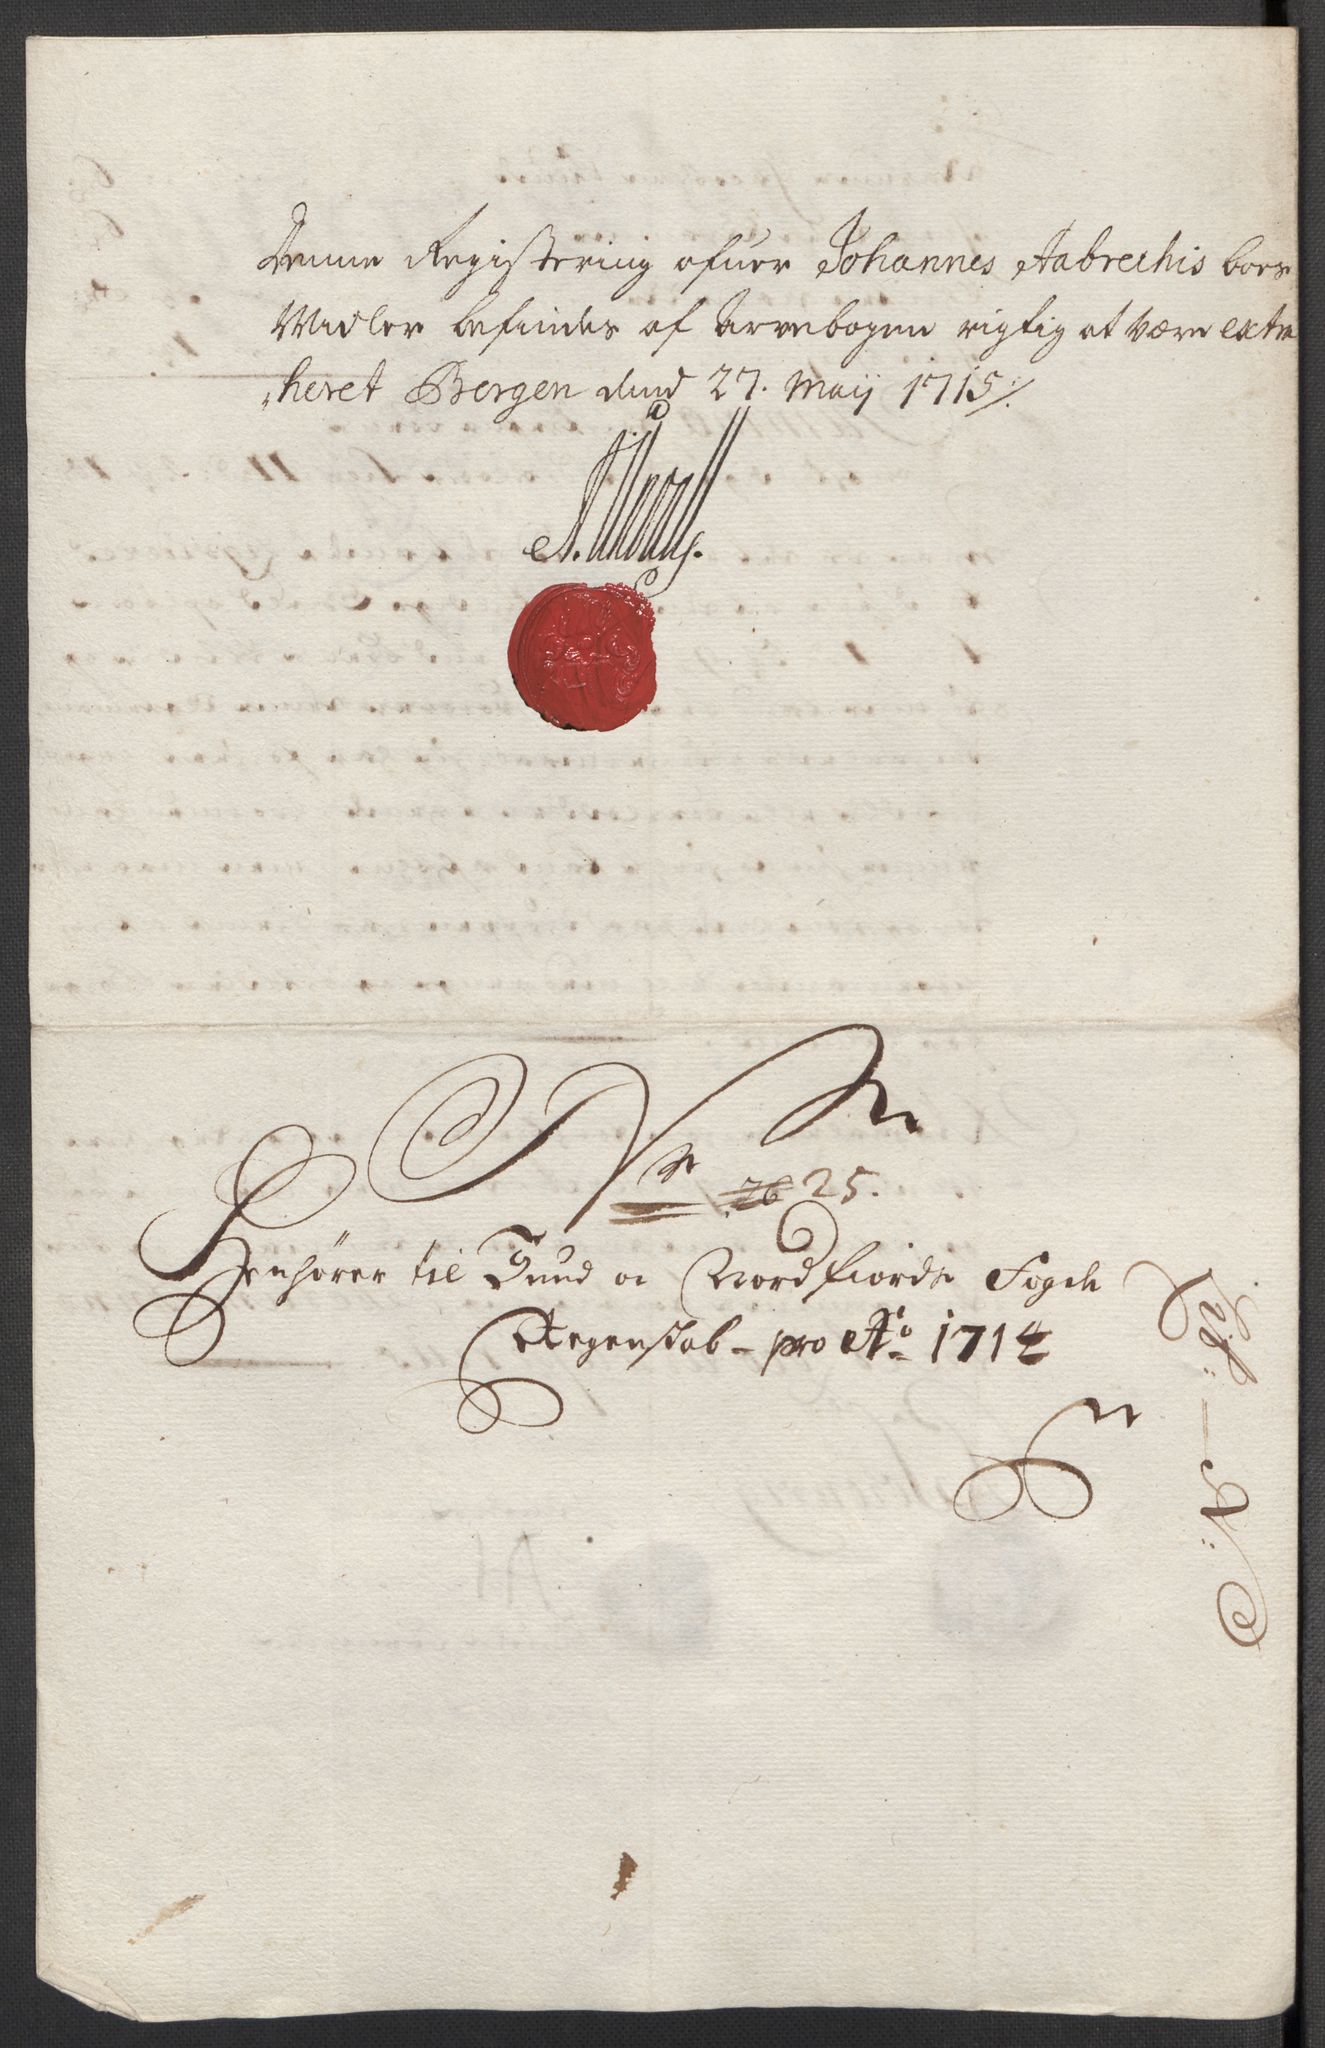 Denne Registering ofuer Johannes Aabrechis boes
Midler befindes af Arfvebogen rigtig at være extra
heret Bergen dend 27. Maij 1715
No 25.
Henhører til Sund oc Nordfiords Fogde
Regenskab pro Ao 1714